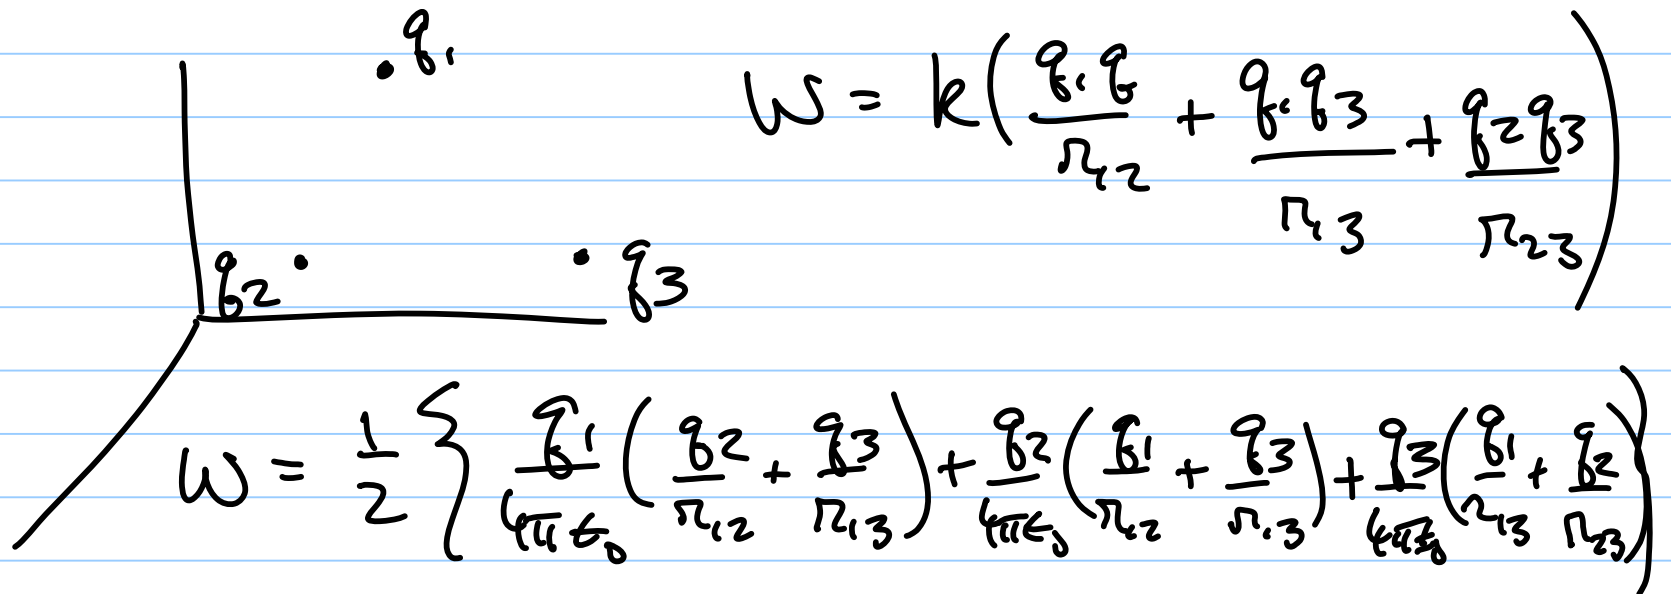 q₁
W = k( q₁q / r₁₂ + q₁q₃ / r₁₃ + q₂q₃ / r₂₃ )
q₂ q₃
W = 1/2 { q₁/4πε₀ ( q₂/r₁₂ + q₃/r₁₃ ) + q₂/4πε₀ ( q₁/r₁₂ + q₃/r₁₃ ) + q₃/4πε₀ ( q₁/r₁₃ + q₂/r₂₃ ) )